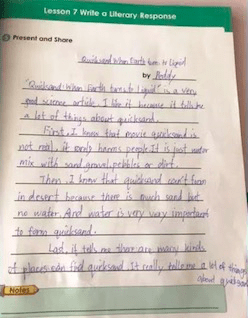 Lesson 7 Write a Literary Response
Present and Share
Quicksand When Earth turn to Liquid
by Peddy
"Quicksand When Earth turn to Liquid" is a very
good science article. I like it because it tells me
a lot of things about quicksand.
First, I know that movie quicksand is
not real, it harms people. It is just water
mix with sand, gravel, pebbles or dirt.
Then, I know that quicksand can't form
in desert because there is much sand but
no water. And water is very way important
to form quicksand.
Last, it tells me that are many kinds
of places can find quicksand. It really tells me a lot of things
about quicksand
Notes